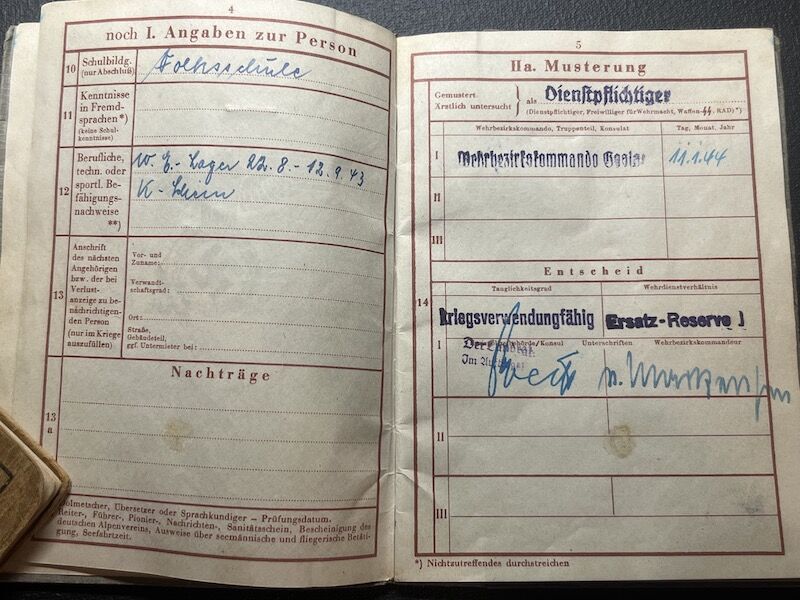 4
noch I. Angaben zur Person
10
Schulbildg.
(nur Abschluß)
Volksschule
11
Kenntnisse
in Fremd-
sprachen*)
(keine Schul-
kenntnisse)
12
Berufliche,
techn. oder
sportl. Be-
fähigungs-
nachweise
**)
W E.-Lager 22.8.-12.9.43
K-Schein
13
Anschrift
des nächsten
Angehörigen
bzw. der bei
Verlust-
anzeige zu be-
nachrichtigen-
den Person
(nur im Kriege
auszufüllen)
Vor- und
Zuname:
Verwandt-
schaftsgrad:
Ort:
Straße,
Gebäudeteil,
ggf. Untermieter bei:
Nachträge
13
a
Dolmetscher, Übersetzer oder Sprachkundiger – Prüfungsdatum.
Reiter-, Führer-, Pionier-, Nachrichten-, Sanitätsschein, Bescheinigung des
deutschen Alpenvereins, Ausweise über seemännische und fliegerische Betäti-
gung, Seefahrtzeit.
5
IIa. Musterung
Gemustert
Ärztlich untersucht } als Dienstpflichtiger
(Dienstpflichtiger, Freiwilliger für Wehrmacht, Waffen-SS, RAD)*)
Wehrbezirkskommando, Truppenteil, Konsulat
Tag, Monat, Jahr
I
Wehrbezirkskommando Goslar
11.1.44
II
III
Entscheid
Tauglichkeitsgrad
Wehrdienstverhältnis
14
kriegsverwendungfähig
Ersatz-Reserve I
I
Der Landrat
Im Auftrage
Unterschriften
Wehrbezirkskommandeur
II
III
*) Nichtzutreffendes durchstreichen